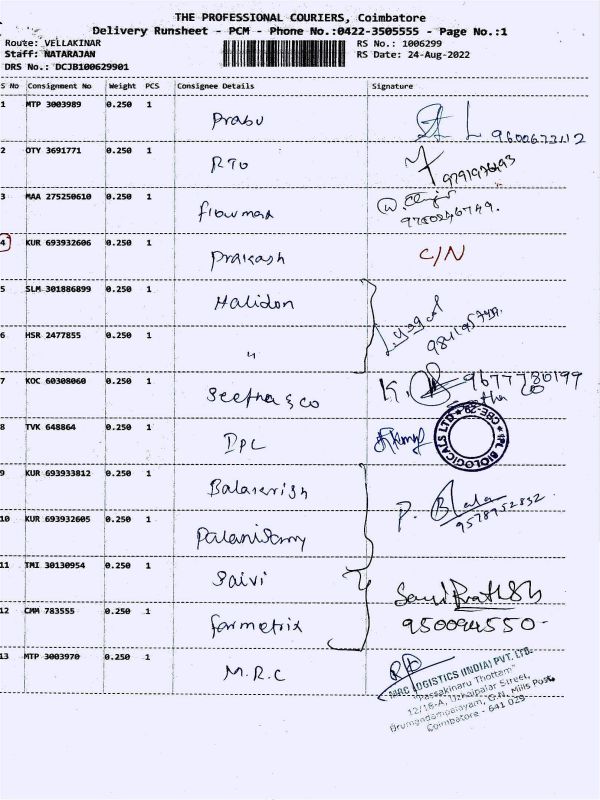 THE PROFESSIONAL COURIERS, Coimbatore
Delivery Runsheet - PCM - Phone No.:0422-3505555 - Page No.:1
Route: VELLAKINAR
RS No.: 1006299
Staff: NATARAJAN
RS Date: 24-Aug-2022
DRS No.: DCJB100629901
S No Consignment No Weight PCS Consignee Details Signature
1 MTP 3003989 0.250 1 Prabu
2 OTY 3691771 0.250 1 RTO
3 MAA 275250610 0.250 1 flowmax
4 KUR 693932606 0.250 1 Prakash C/N
5 SLM 301886899 0.250 1 Halidon
6 HSR 2477855 0.250 1 "
7 KOC 60308060 0.250 1 Seetha & co K. 9677780199
8 TVK 648864 0.250 1 IPL
IPL BIOLOGICALS LTD * CBE-29 *
9 KUR 693933812 0.250 1 Balakrish P. Bala
9578952832
10 KUR 693932605 0.250 1 Palanisamy
11 TMI 30130954 0.250 1 Saivi
12 CMM 783555 0.250 1 farmetrix 950094550-
13 MTP 3003970 0.250 1 M.R.C
MRC LOGISTICS (INDIA) PVT. LTD.
"Passakinaru Thottam"
12/16-A, Uzhaipalar Street,
G.N. Mills Post,
Coimbatore - 641 029